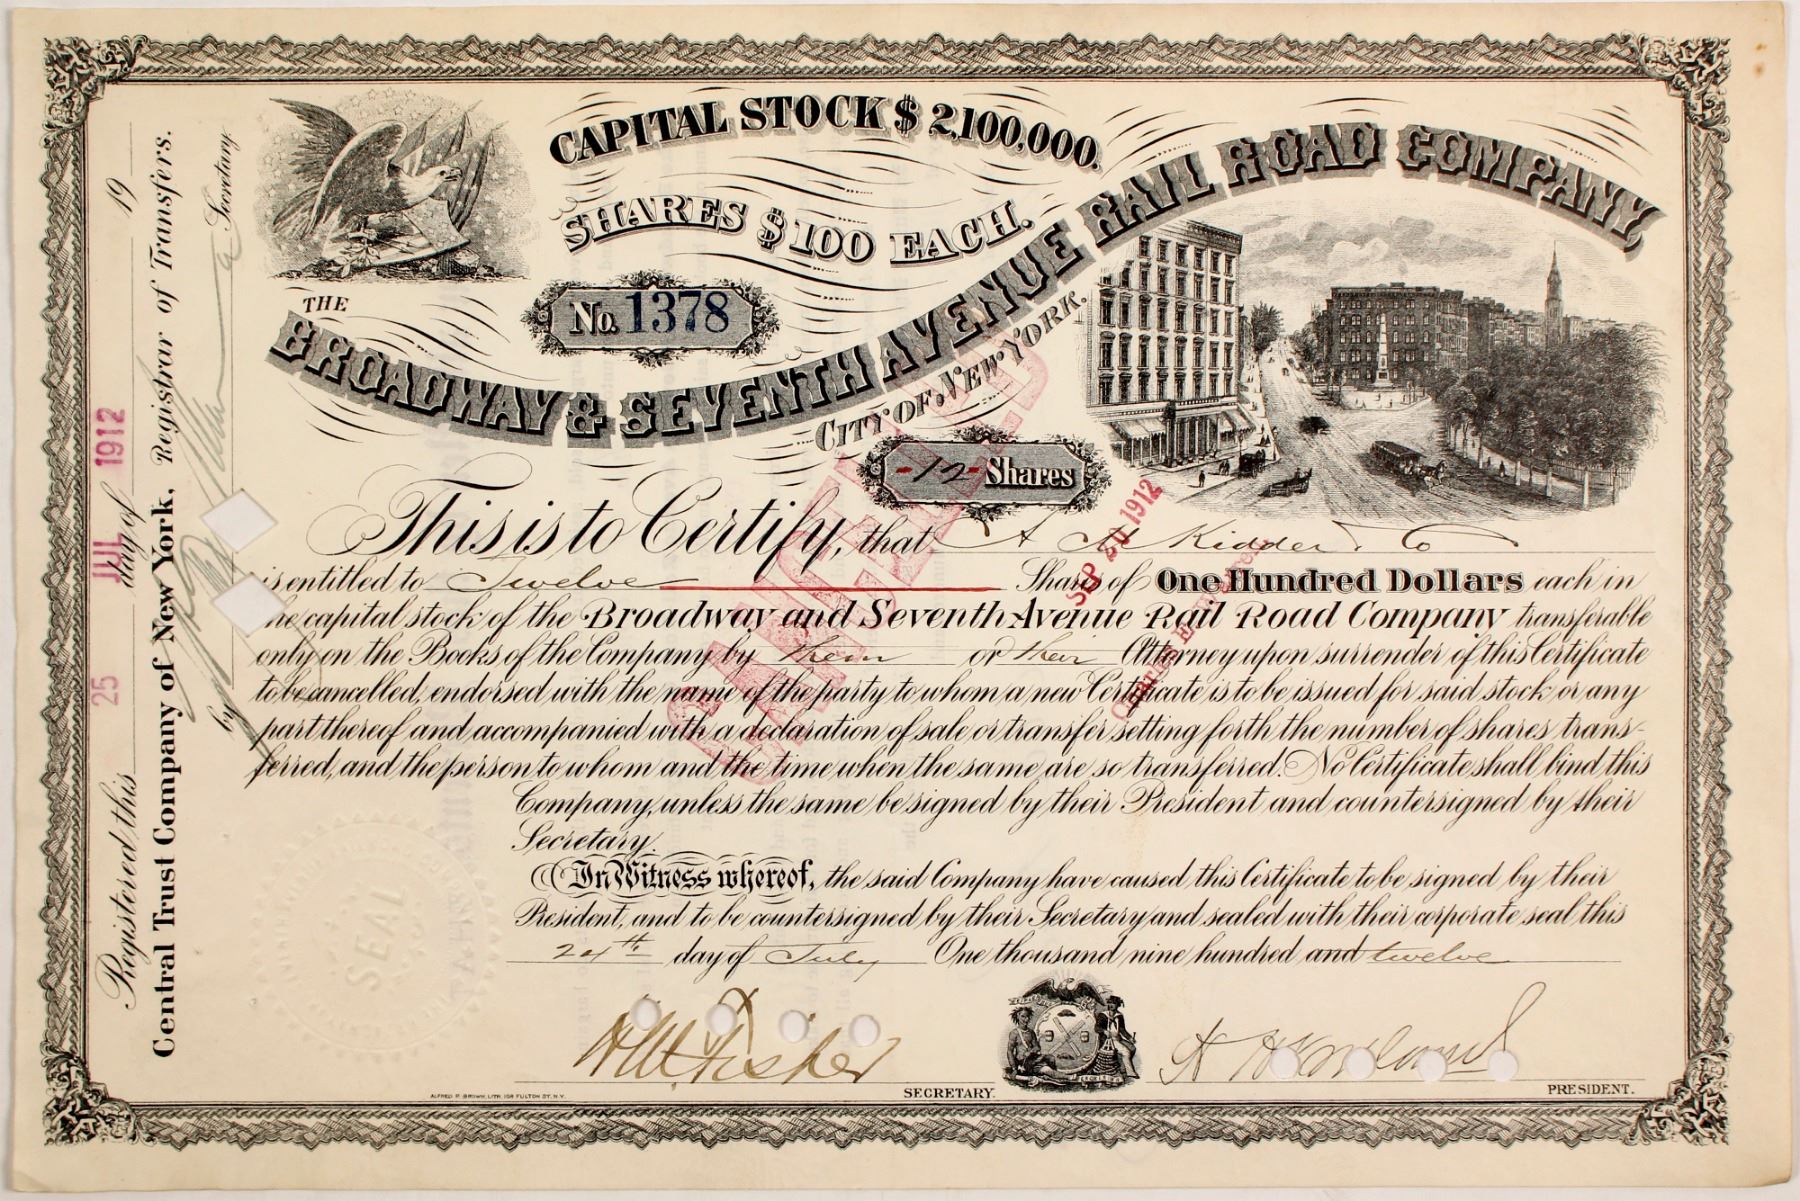 CAPITAL STOCK $ 2,100,000.
SHARES $ 100 EACH.
No. 1378
THE
BROADWAY & SEVENTH AVENUE RAIL ROAD COMPANY,
CITY OF NEW-YORK.
-12- Shares
This is to Certify, that A M Kidder & Co
is entitled to Twelve Shares of One Hundred Dollars each in
the capital stock of the Broadway and Seventh Avenue Rail Road Company transferable
only on the Books of the Company by them or their Attorney upon surrender of this Certificate
to be cancelled, endorsed with the name of the party to whom a new Certificate is to be issued for said stock or any
part thereof and accompanied with a declaration of sale or transfer setting forth the number of shares trans-
ferred, and the person to whom and the time when the same are so transferred. No Certificate shall bind this
Company, unless the same be signed by their President and countersigned by their
Secretary.
In Witness whereof, the said Company have caused this Certificate to be signed by their
President, and to be countersigned by their Secretary and sealed with their corporate seal this
24th day of July One thousand nine hundred and twelve
SECRETARY.
PRESIDENT.
ALFRED P. BROWN, LITH. 108 FULTON ST. N.Y.
Registered this 25 day of JUL 1912 19
Central Trust Company of New York, Registrar of Transfers.
by a Secretary
CANCELLED
SEP 20 1912
SEAL